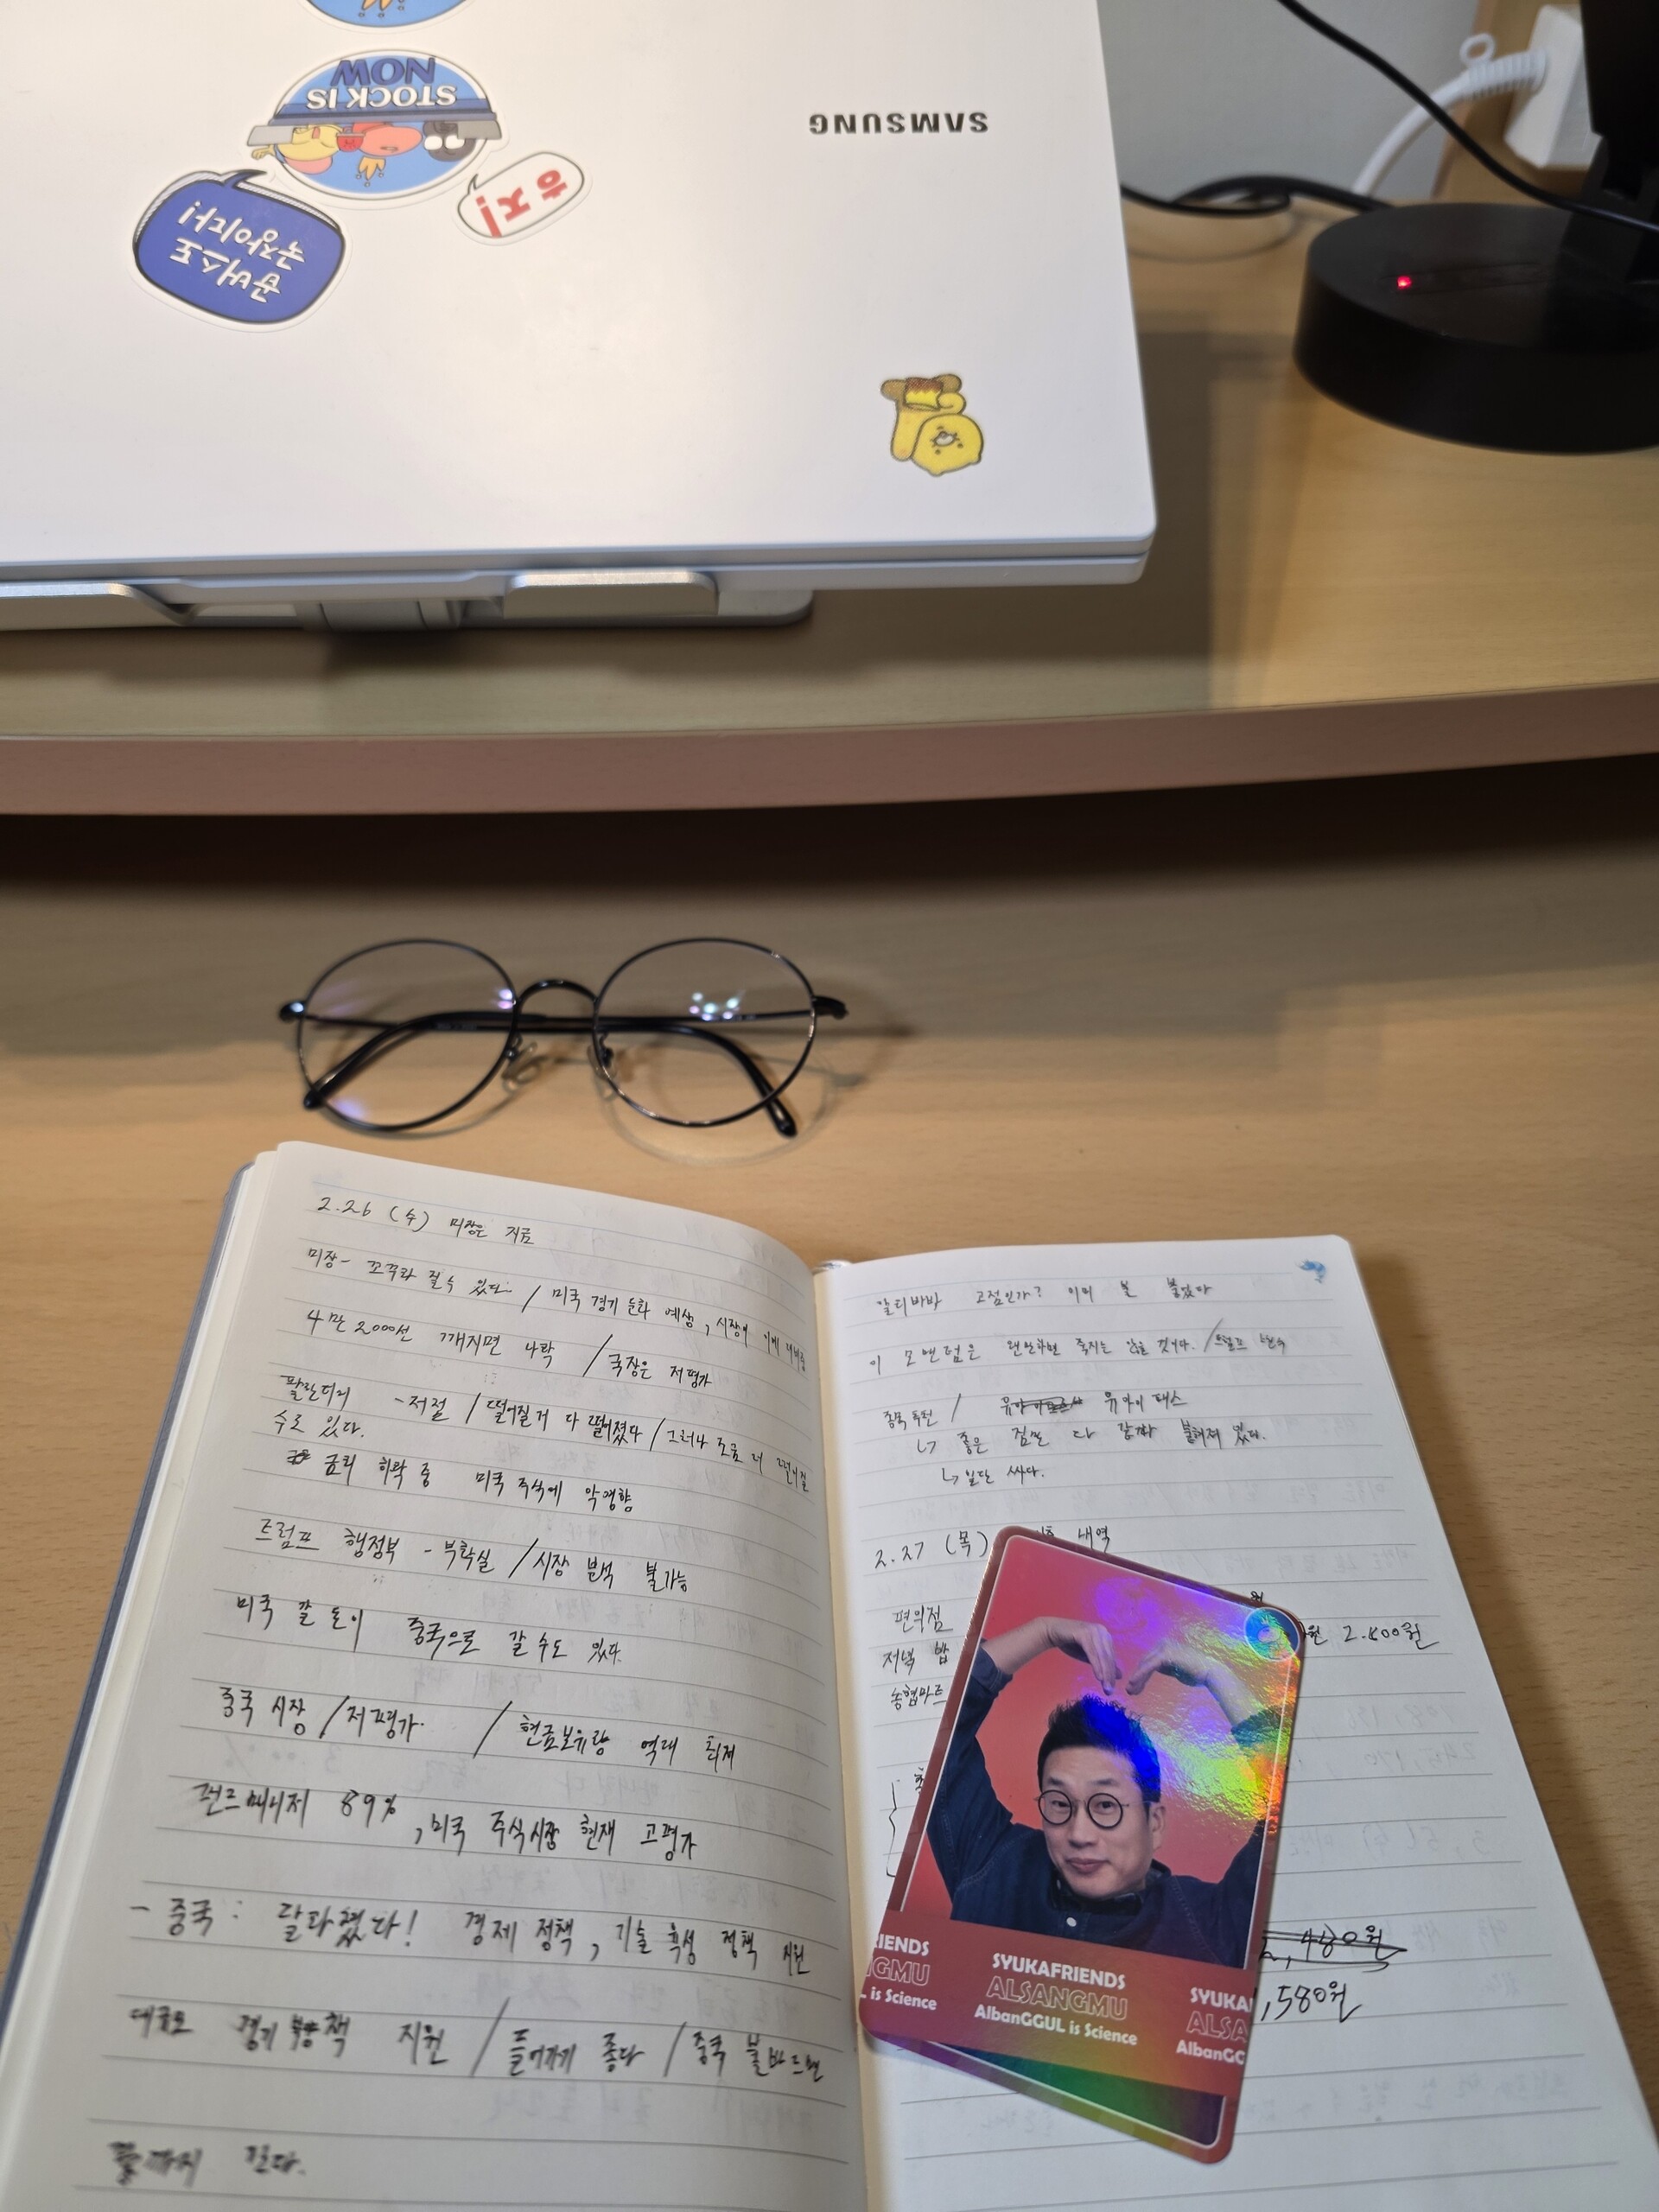 STOCK IS
NOW
흥치!
굳버스도
국장이다!
SAMSUNG
2.26 (수) 미장은 지금
미장- 꼬꾸라 질 수 있다. / 미국 경기 둔화 예상, 시장이 이에
4만 2000선 깨지면 나락 / 국장은 저평가
팔란티어 - 저점 / 떨어질거 다 떨어졌다 / 그러나 조금 더 떨어질
수도 있다.
금리 하락 중 미국 주식에 악영향
트럼프 행정부 - 부확실 / 시장 분석 불가능
미국 갈 돈이 중국으로 갈 수도 있다.
중국 시장 / 저평가. / 현금보유량 역대 최저
펀드매니저 89%, 미국 주식시장 현재 고평가
- 중국 : 달라졌다! 경제 정책, 기술 육성 정책 지원
대규모 경기 부양책 지원 / 들어가기 좋다 / 중국 불바드면
끝까지 간다.
알리바바 고점인가? 이미 불 붙었다
이 모멘텀은 웬만하면 죽지는 않을 것이다. / 트럼프 변수
종목 추천 / 유아이패스
↳ 좋은 점만 다 갈짜 붙혀져 있다.
↳ 일단 싸다.
2.27 (목) 내역
편의점 원 2.800원
저녁 밥
농협마트
2,480원
,580원
RIENDS
NGMU
L is Science
SYUKAFRIENDS
ALSANGMU
AlbanGGUL is Science
SYUKA
ALSA
AlbanGG